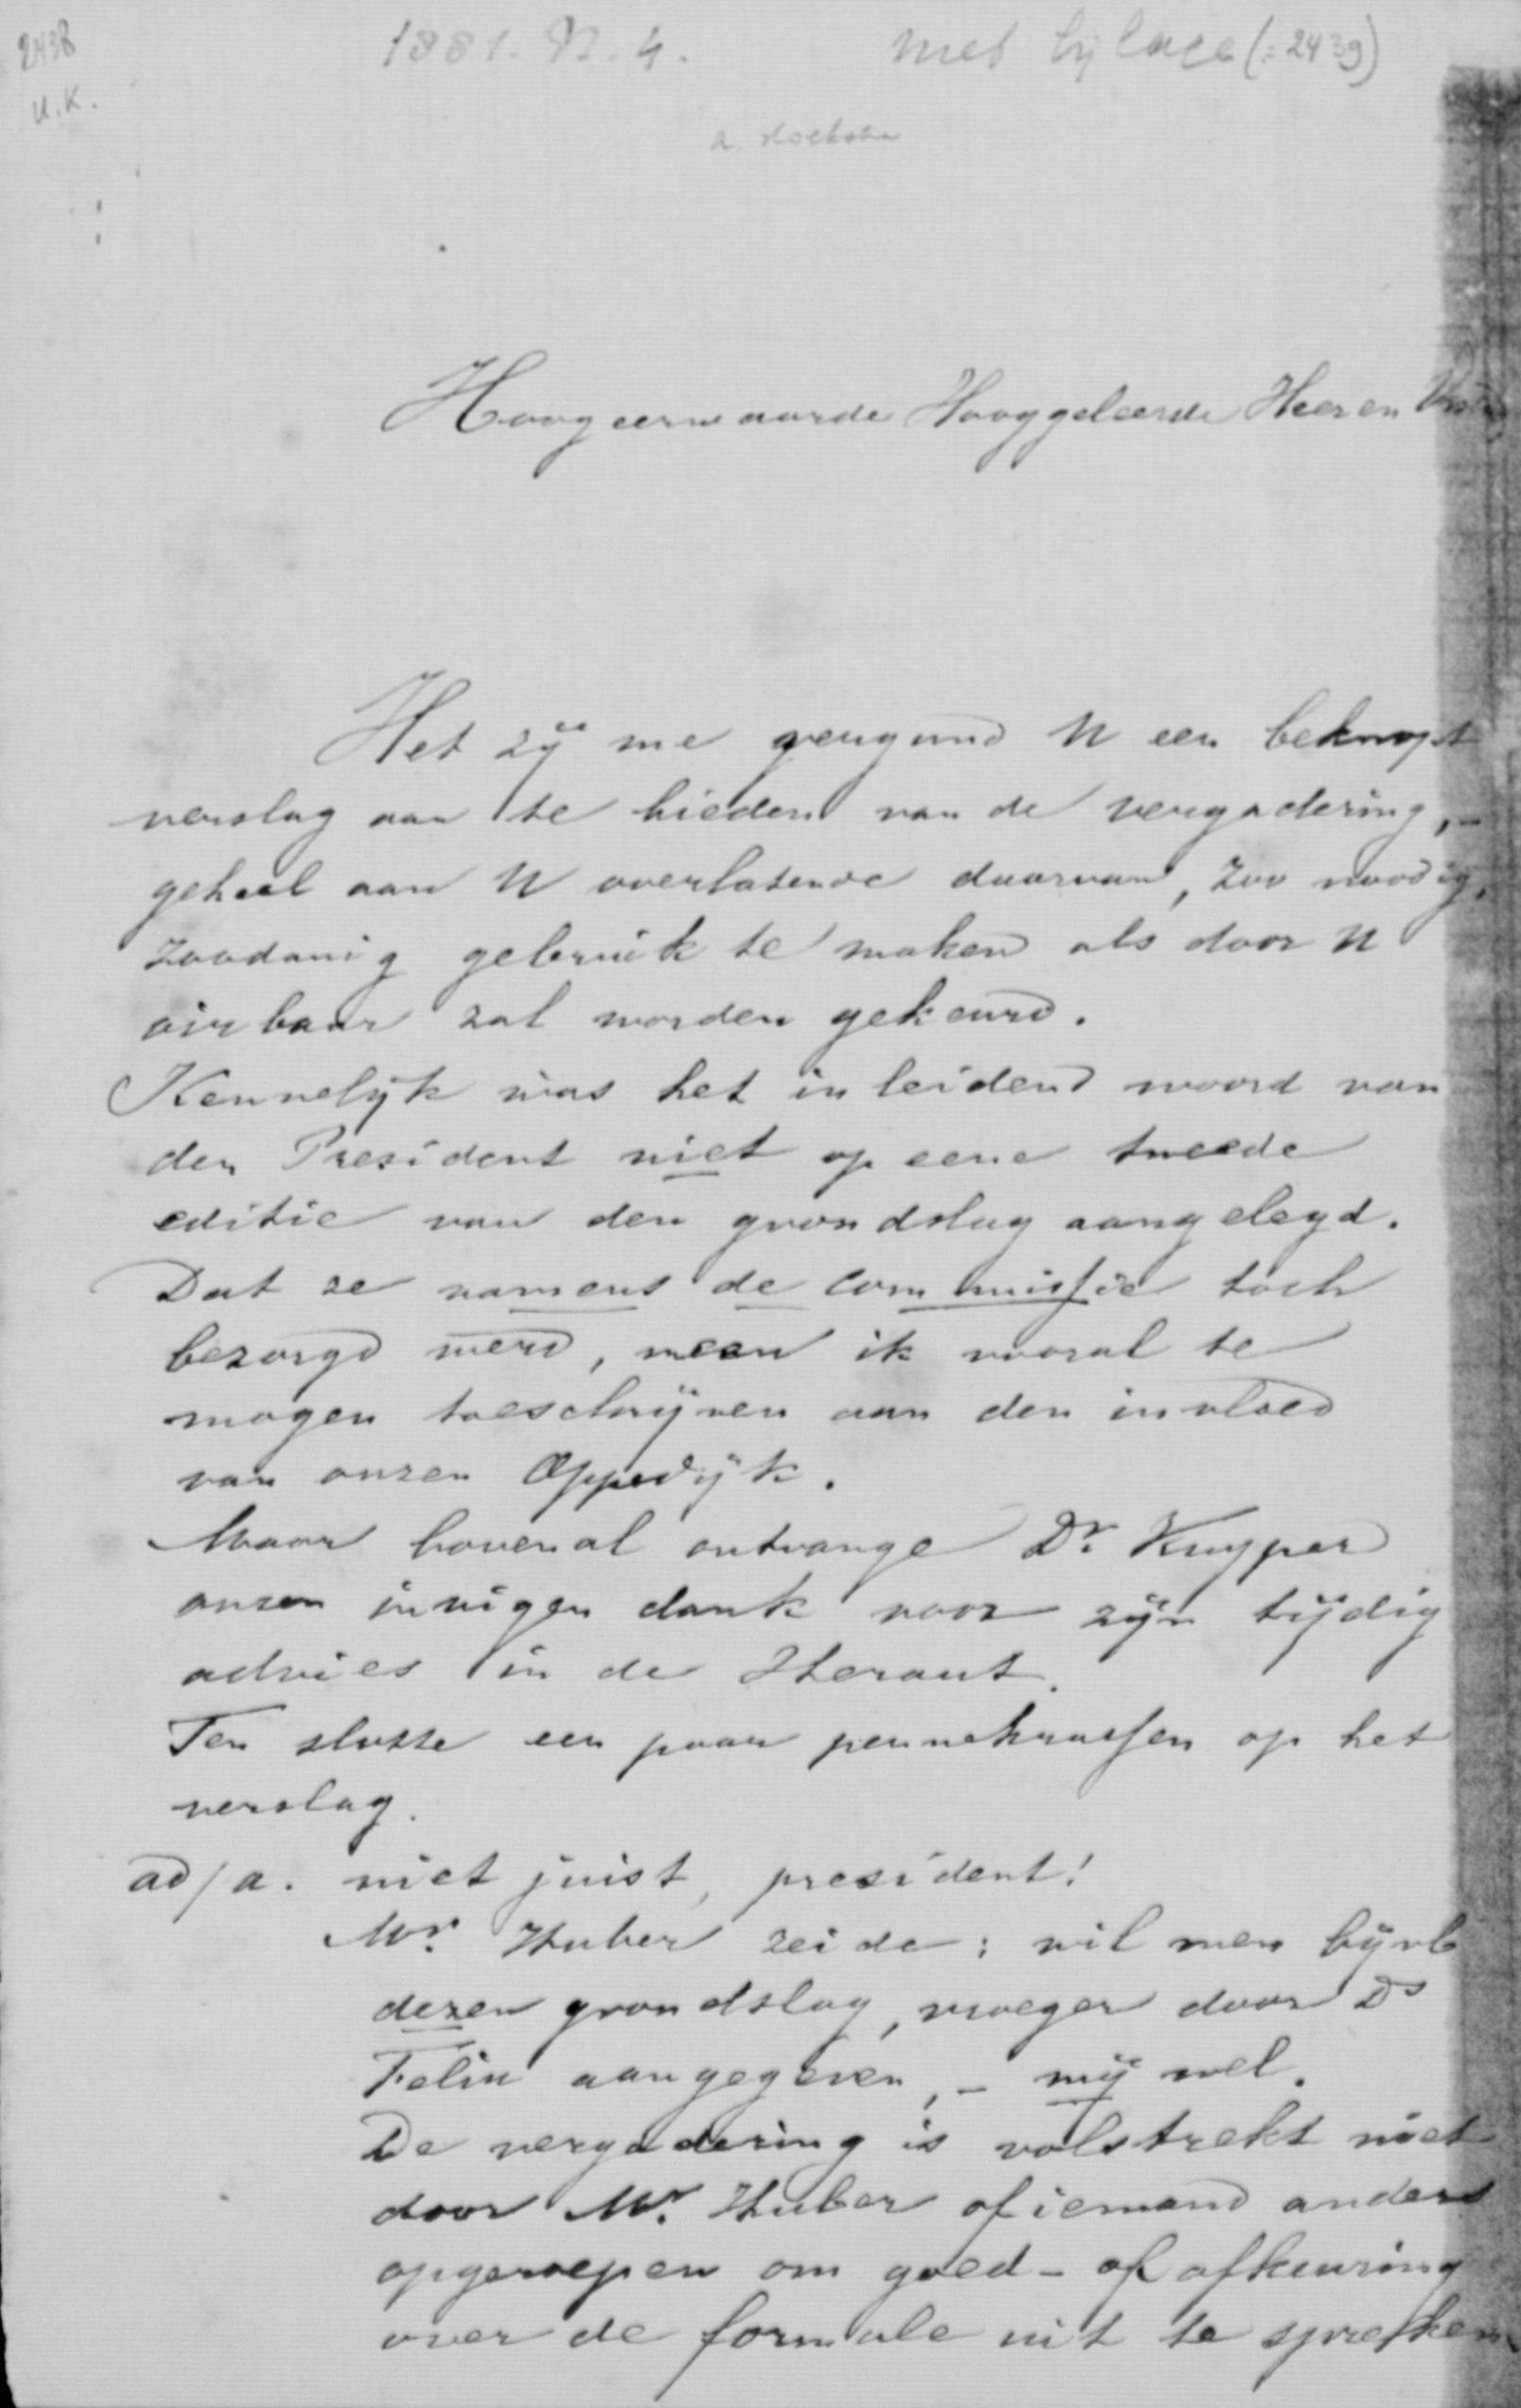 2438
U.K.
1881. N. 4.
met bijlage (: 2439)
a. Hoekstra
Hoogeerwaarde Hooggeleerde Heeren
Het zij me vergund U een beknopt
verslag aan te bieden van de vergadering, -
geheel aan U overlatende daarvan, zoo noodig,
zoodanig gebruik te maken als door U
oirbaar zal worden gekeurd.
Kennelijk was het inleidend woord van
den President niet op eene tweede
editie van den grondslag aangelegd.
Dat ze namens de commissie toch
bezorgd werd, meen ik vooral te
mogen toeschrijven aan den invloed
van onzen Oppedijk.
Maar bovenal ontvange Dr. Kuyper
onzen innigen dank voor zijn tijdig
advies in de Heraut.
Ten slotte een paar pennekrassen op het
verslag.
ad/a. niet juist, president!
Mr. Huber zeide: wil men bijvb
dezen grondslag, vroeger door Ds
Felix aangegeven, - mij wel.
De vergadering is volstrekt niet
door Mr. Huber of iemand anders
opgeroepen om goed- of afkeuring
over de formule uit te spreken